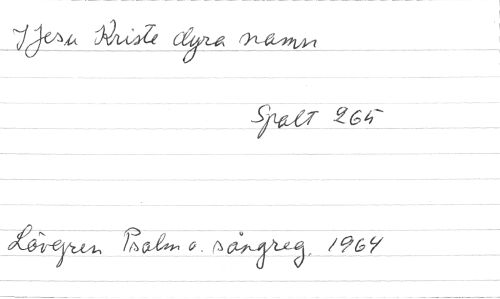 I Jesu Kriste dyra namn
Spalt 265
Lövgren Psalm o. sångreg. 1964